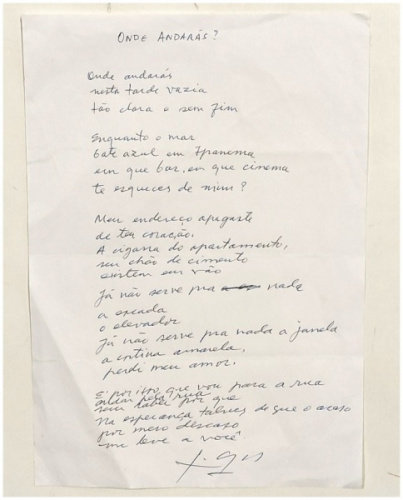 ONDE ANDARÁS?
Onde andarás
nesta tarde vazia
tão clara e sem fim
Enquanto o mar
bate azul em Ipanema
em que bar, em que cinema
te esqueces de mim?
Meu endereço apagaste
de teu coração.
A cigarra do apartamento,
seu chão de cimento
existem em vão
Já não serve pra nada
a escada
o elevador
Já não serve pra nada a janela
a cortina amarela,
perdi meu amor.
E é por isso que vou para a rua
andar pela rua
sem saber por que
Na esperança talvez de que o acaso
por mero descaso
me leve a você